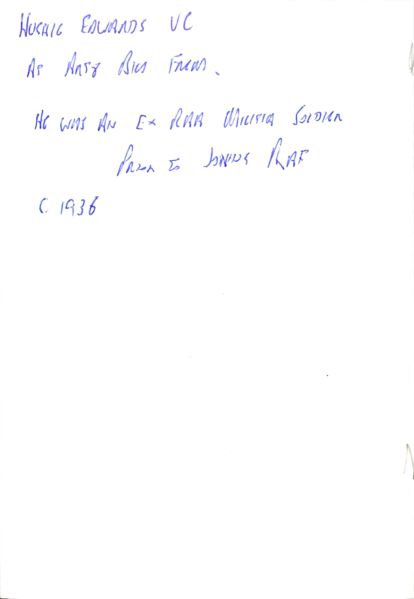 HUGHIE EDWARDS VC
AT ARTY BKS FREM.
HE WAS AN EX RAA MILITIA SOLDIER
PRIOR TO JOINING RAF
C. 1936